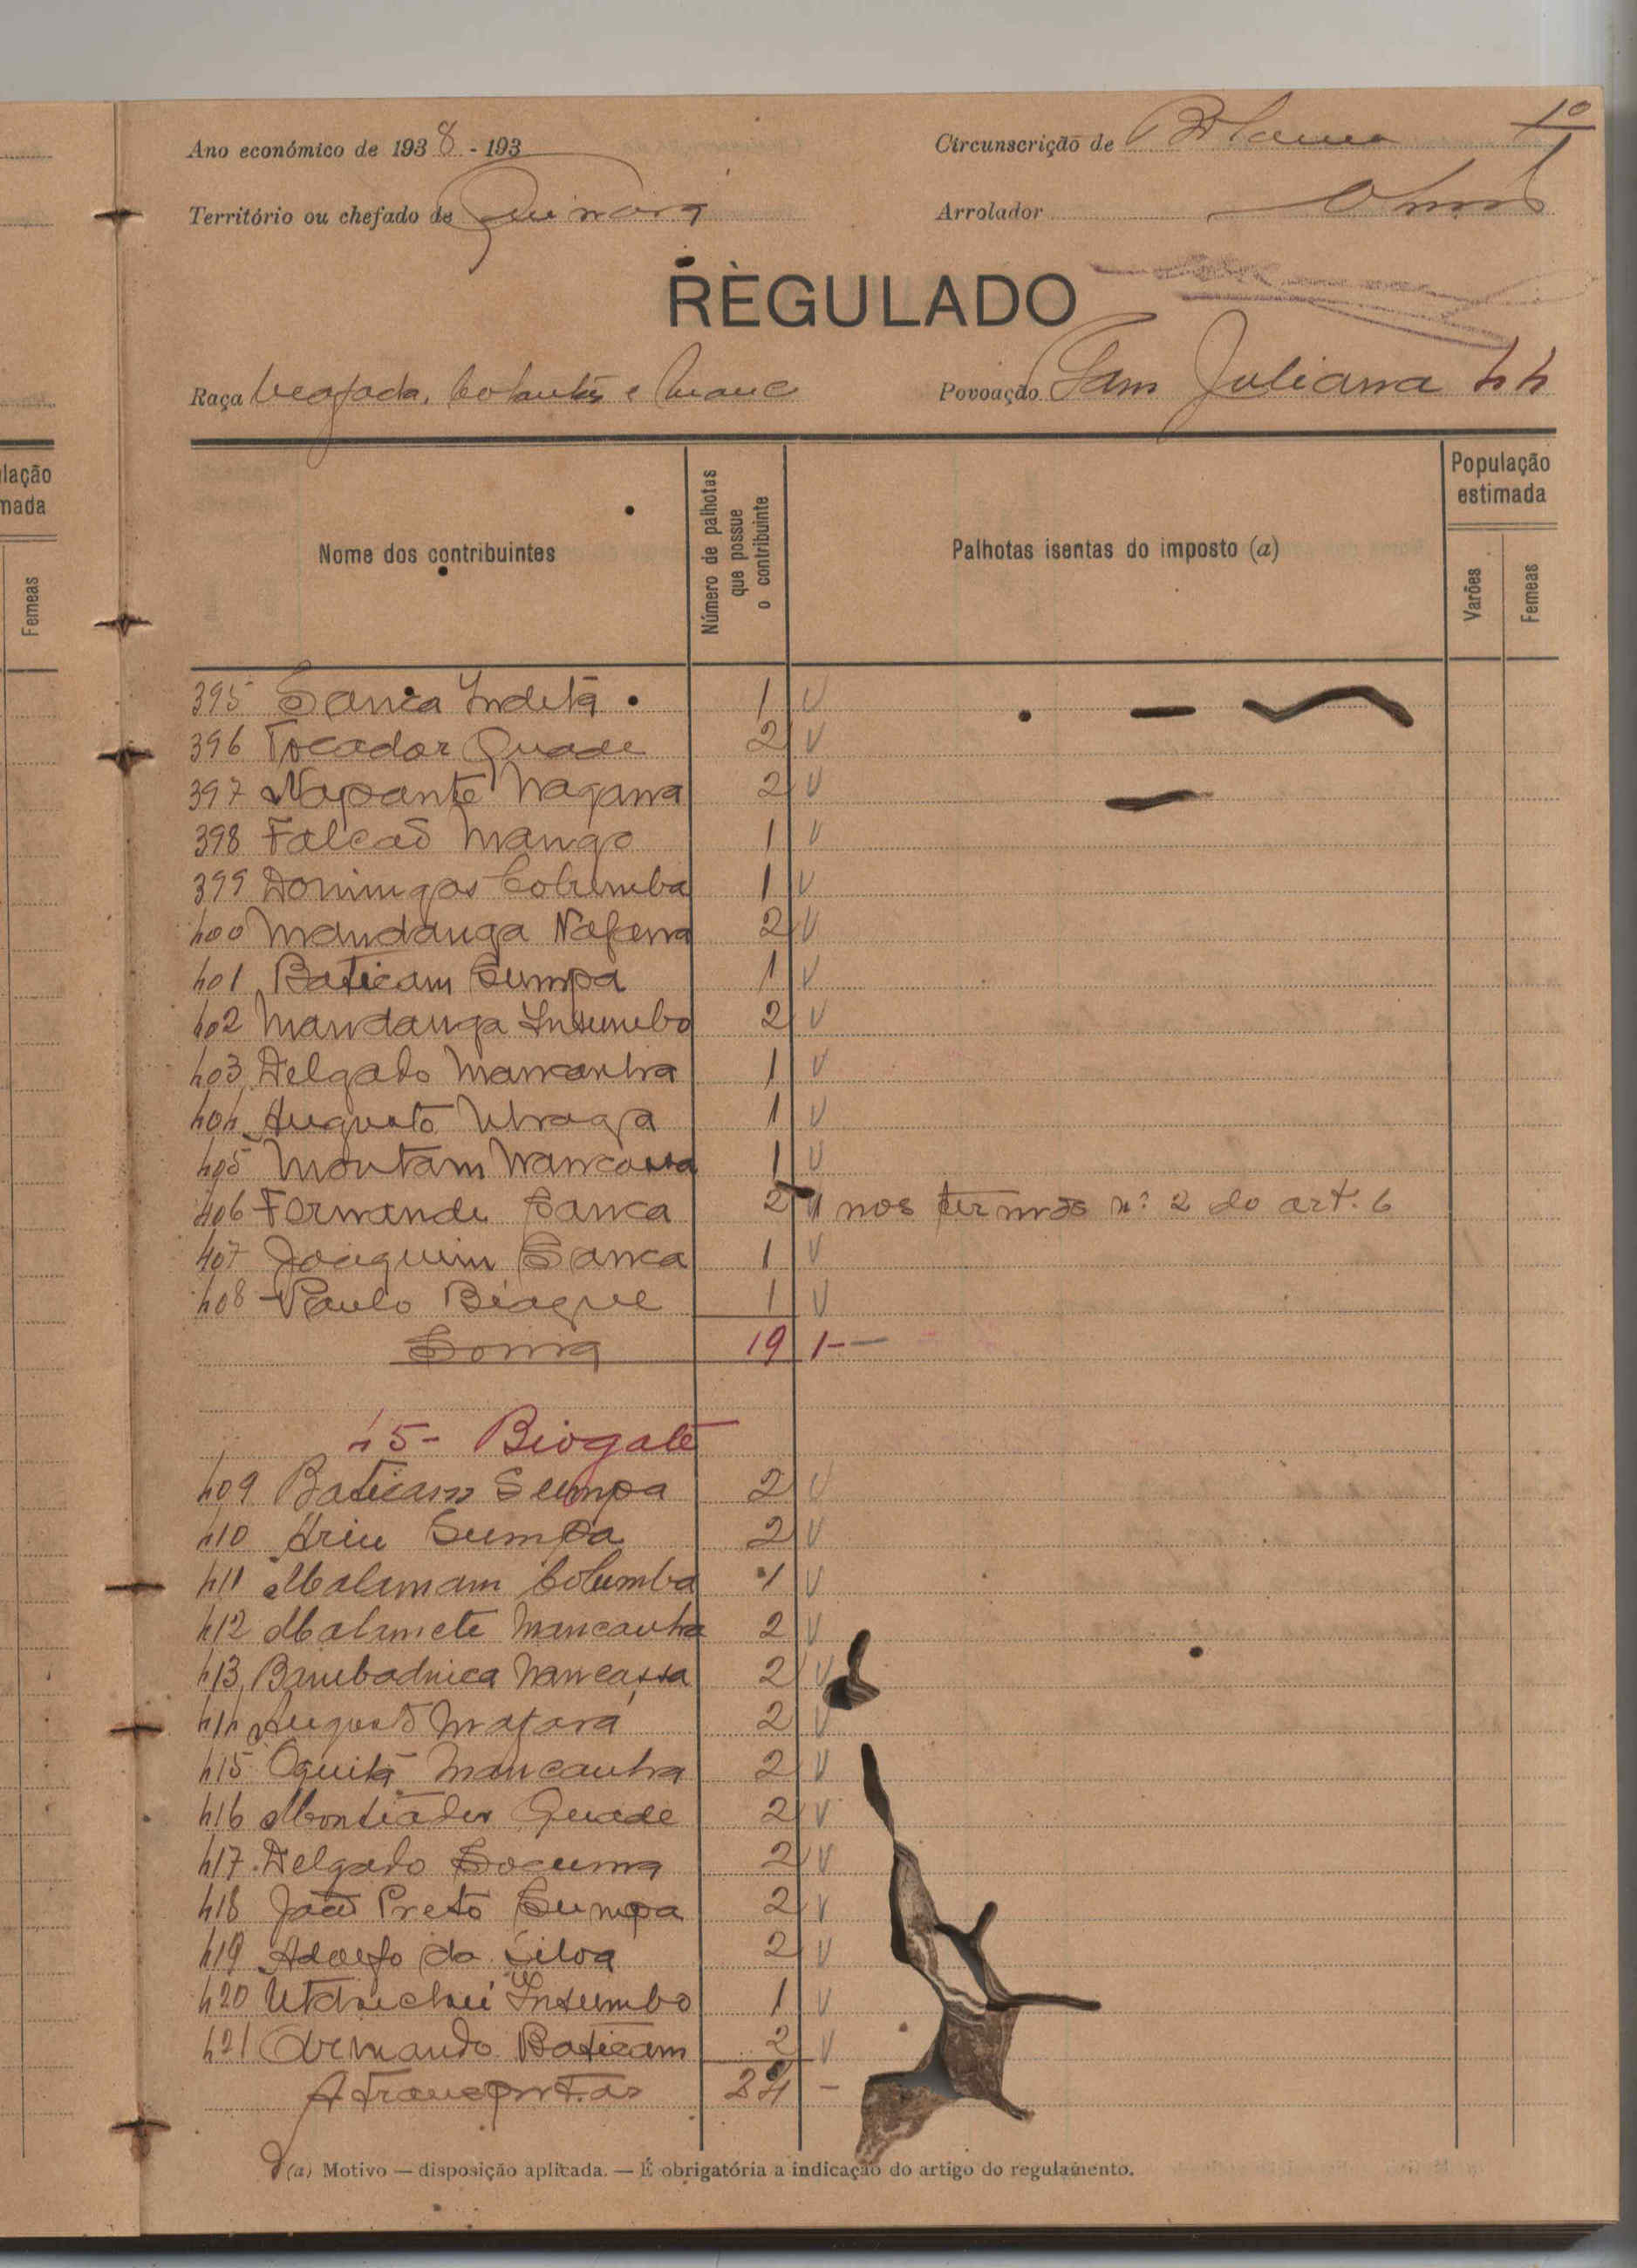 10
Ano económico de 1938 - 193
Circunscrição de Bolama
Território ou chefado de Quinará
Arrolador
REGULADO
Raça beafada, e manc
Povoação Sam Juliana 44
lação
mada
Femeas
Nome dos contribuintes
Número de palhotas que possue o contribuinte
Palhotas isentas do imposto (a)
População estimada
Varões
Femeas
395 Sanca Indetá 1 V
396 Tocador Quade 2 V
397 Napante Nagana 2 V
398 Falcaõ Mango 1 V
399 Domingos Columba 1 V
400 Mandanga Nafanna 2 V
401 Baticam Sumpa 1 V
402 Mandanga Insumbo 2 V
403 Delgado Mancanha 1 V
404 Augusto 1 V
405 Montam Nancassa 1 V
406 Fernande Sanca 2 1 nos termos nº 2 do art. 6
407 Joaquim Sanca 1 V
408 Paulo Biague 1 V
Soma 19 1 -
45 - Biogate
409 Baticam Sumpa 2 V
410 Ariu Sumpa 2 V
411 Malamam Columba 1 V
412 Malamete Mancanha 2 V
413 Bambadnica Nancassa 2 V
414 Augusto Mafará 2 V
415 Oquitá Mancanha 2 V
416 Montiador Quade 2 V
417 Delgado Socuma 2 V
418 Joaõ Preto Sumpa 2 V
419 Adolfo da Silva 2 V
420 Insumbo 1 V
421 Armando Baticam 2 V
A transportar 24 -
(a) Motivo — disposição aplicada. — É obrigatória a indicação do artigo do regulamento.